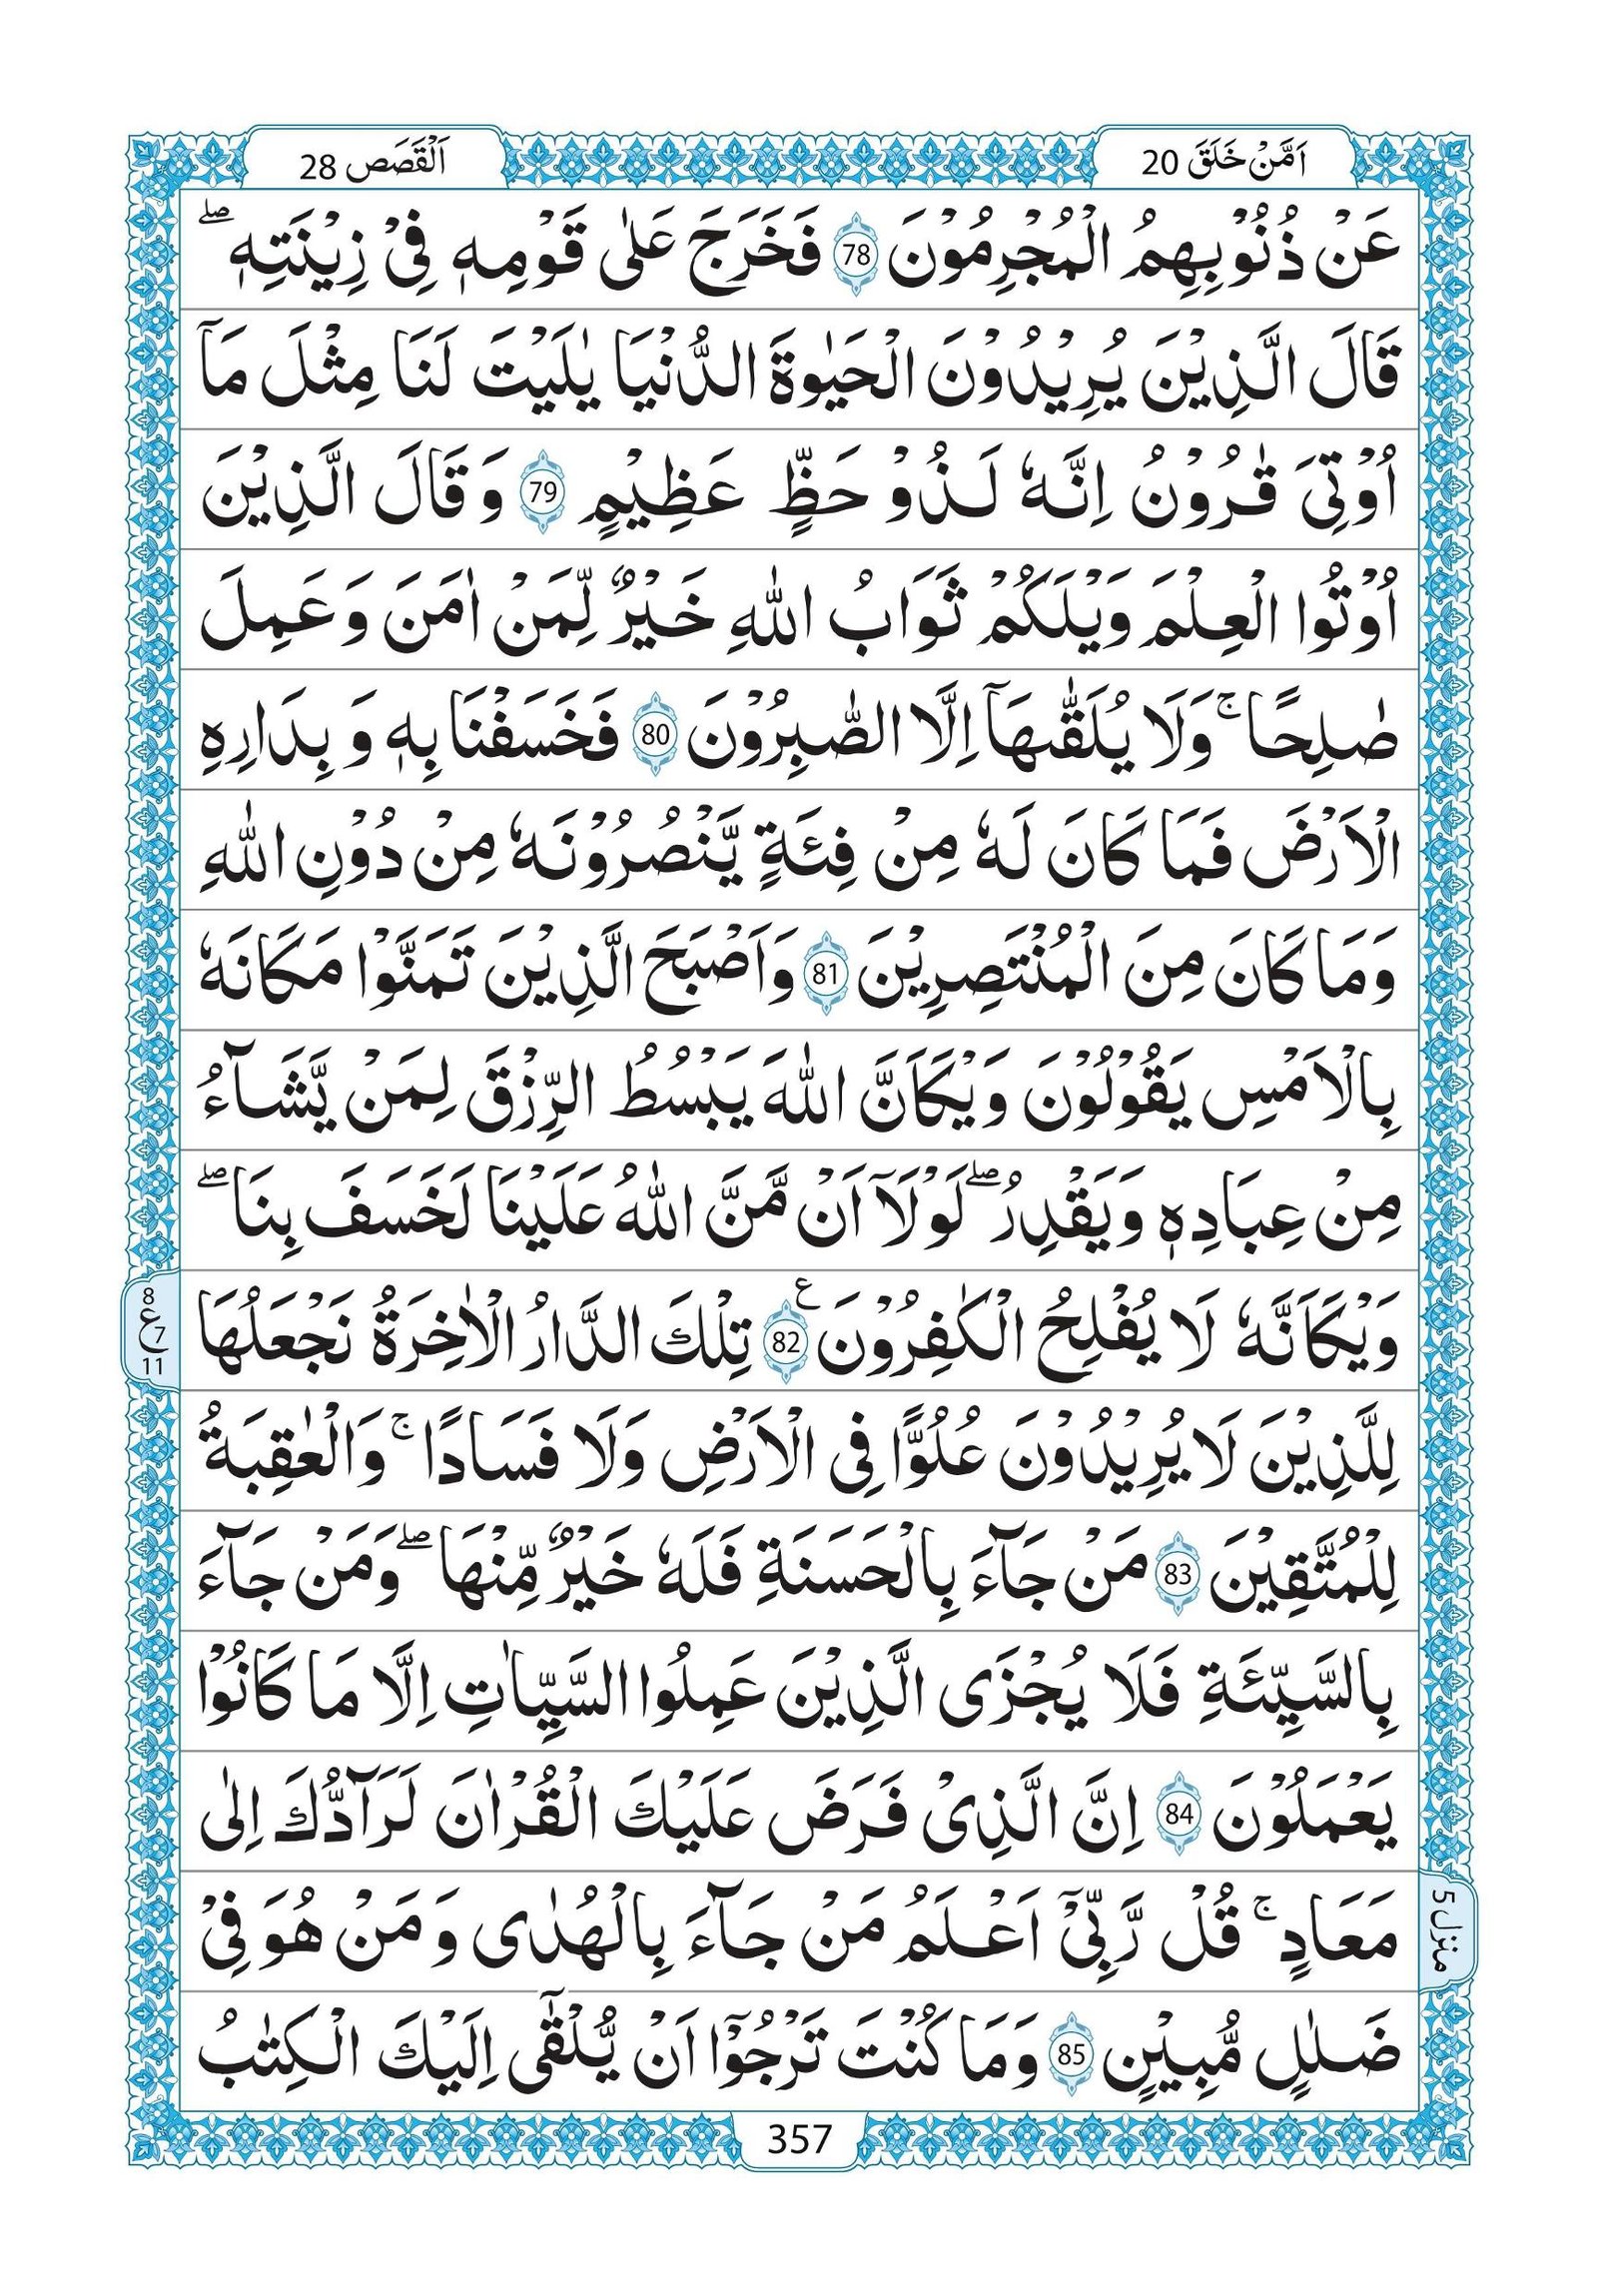 اَمَّنْ خَلَقَ 20
اَلْقَصَص 28
عَنْ ذُنُوْبِهِمُ الْمُجْرِمُوْنَ 78 فَخَرَجَ عَلٰى قَوْمِهٖ فِیْ زِیْنَتِهٖ ؕۖ
قَالَ الَّذِیْنَ یُرِیْدُوْنَ الْحَیٰوةَ الدُّنْیَا یٰلَیْتَ لَنَا مِثْلَ مَاۤ
اُوْتِیَ قٰرُوْنُ اِنَّهٗ لَذُوْ حَظٍّ عَظِیْمٍ 79 وَقَالَ الَّذِیْنَ
اُوْتُوا الْعِلْمَ وَیْلَكُمْ ثَوَابُ اللّٰهِ خَیْرٌ لِّمَنْ اٰمَنَ وَعَمِلَ
صٰلِحًا ۚ وَلَا یُلَقّٰىهَاۤ اِلَّا الصّٰبِرُوْنَ 80 فَخَسَفْنَا بِهٖ وَ بِدَارِهِ
الْاَرْضَ فَمَا كَانَ لَهٗ مِنْ فِئَةٍ یَّنْصُرُوْنَهٗ مِنْ دُوْنِ اللّٰهِ
وَمَا كَانَ مِنَ الْمُنْتَصِرِیْنَ 81 وَاَصْبَحَ الَّذِیْنَ تَمَنَّوْا مَكَانَهٗ
بِالْاَمْسِ یَقُوْلُوْنَ وَیْكَاَنَّ اللّٰهَ یَبْسُطُ الرِّزْقَ لِمَنْ یَّشَآءُ
مِنْ عِبَادِهٖ وَیَقْدِرُ ۖ لَوْلَاۤ اَنْ مَّنَّ اللّٰهُ عَلَیْنَا لَخَسَفَ بِنَا ۖ
وَیْكَاَنَّهٗ لَا یُفْلِحُ الْكٰفِرُوْنَ ع 82 تِلْكَ الدَّارُ الْاٰخِرَةُ نَجْعَلُهَا
8 ع 7 11
لِلَّذِیْنَ لَا یُرِیْدُوْنَ عُلُوًّا فِی الْاَرْضِ وَلَا فَسَادًا ۚ وَالْعٰقِبَةُ
لِلْمُتَّقِیْنَ 83 مَنْ جَآءَ بِالْحَسَنَةِ فَلَهٗ خَیْرٌ مِّنْهَا ۖ وَمَنْ جَآءَ
بِالسَّیِّئَةِ فَلَا یُجْزَی الَّذِیْنَ عَمِلُوا السَّیِّاٰتِ اِلَّا مَا كَانُوْا
یَعْمَلُوْنَ 84 اِنَّ الَّذِیْ فَرَضَ عَلَیْكَ الْقُرْاٰنَ لَرَآدُّكَ اِلٰى
مَعَادٍ ۚ قُلْ رَّبِّیْۤ اَعْلَمُ مَنْ جَآءَ بِالْهُدٰى وَمَنْ هُوَ فِیْ
منزل 5
ضَلٰلٍ مُّبِیْنٍ 85 وَمَا كُنْتَ تَرْجُوْۤا اَنْ یُّلْقٰۤى اِلَیْكَ الْكِتٰبُ
357